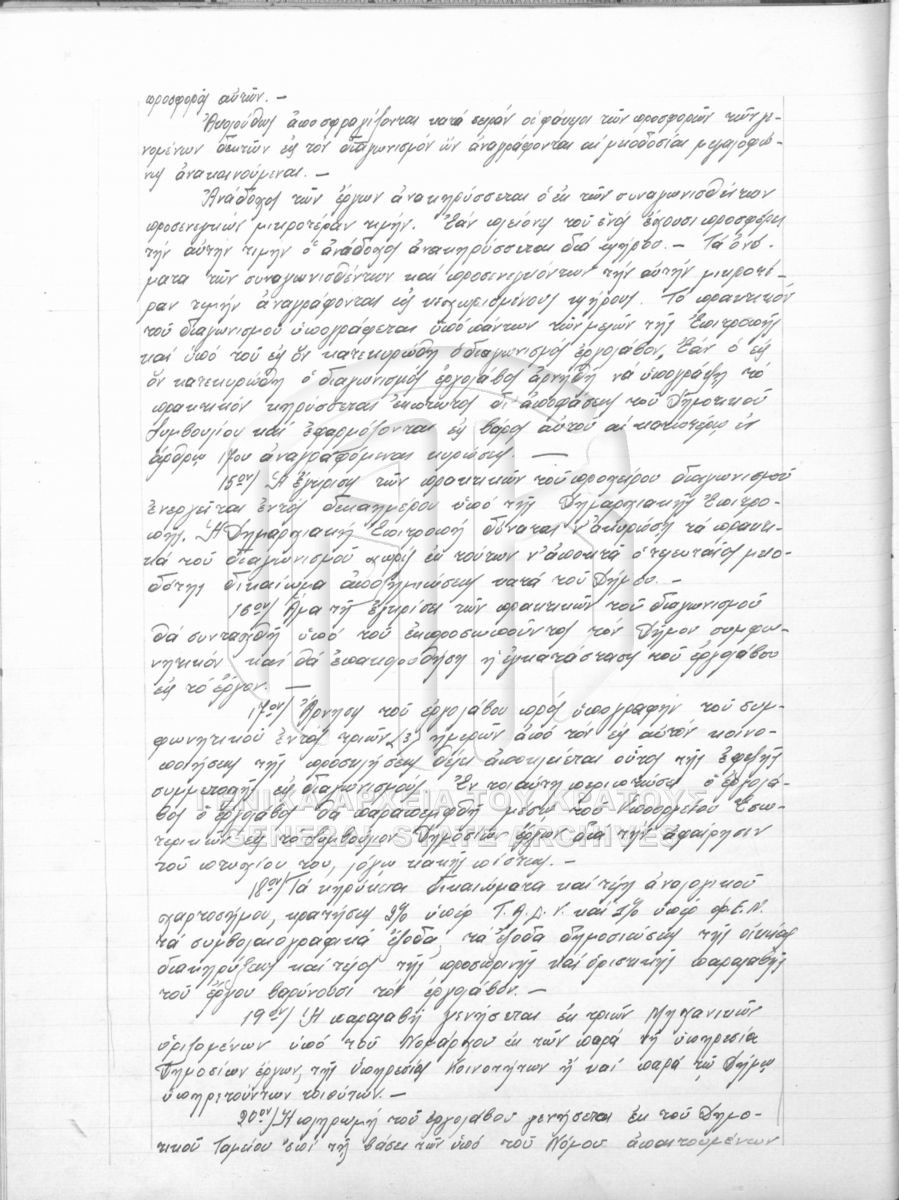 προσφοράς αὐτῶν. —
Ἀκολούθως ἀποσφραγίζονται κατά σειράν οἱ φάκελοι τῶν προσφορῶν τῶν γε-
νομένων δεκτῶν εἰς τόν διαγωνισμόν ὧν ἀναγράφονται αἱ μειοδοσίαι μεγαλοφώ-
νως ἀνακοινούμεναι. —
Ἀνάδοχος τῶν ἔργων ἀνακηρύσσεται ὁ ἐκ τῶν συναγωνισθέντων
προσενεγκών μικροτέραν τιμήν. Ἐάν πλείονες τοῦ ἑνός ἔχουσι προσφέρει
τήν αὐτήν τιμήν ὁ ἀνάδοχος ἀνακηρύσσεται διά κλήρου. — Τά ὀνό-
ματα τῶν συναγωνισθέντων καί προσενεγκόντων τήν αὐτήν μικροτέ-
ραν τιμήν ἀναγράφονται εἰς κλήρους. Τό πρακτικόν
τοῦ διαγωνισμοῦ ὑπογράφεται ὑπό πάντων τῶν μελῶν τῆς Ἐπιτροπῆς
καί ὑπό τοῦ εἰς ὅν κατεκυρώθη ὁ διαγωνισμός ἐργολάβου. Ἐάν ὁ εἰς
ὅν κατεκυρώθη ὁ διαγωνισμός ἐργολάβος ἀρνηθῇ νά ὑπογράψῃ τό
πρακτικόν κηρύσσεται ἔκπτωτος δι' ἀποφάσεως τοῦ Δημοτικοῦ
Συμβουλίου καί ἐφαρμόζονται εἰς βάρος αὐτοῦ αἱ κατωτέρω ἐν
ἄρθρῳ 17ον ἀναγραφόμεναι κυρώσεις. —
15ον/ Ἡ ἔγκρισις τῶν πρακτικῶν τοῦ προχείρου διαγωνισμοῦ
ἐνεργεῖται ἐντός δεκαημέρου ὑπό τῆς Δημαρχιακῆς Ἐπιτρο-
πῆς. Ἡ Δημαρχιακή Ἐπιτροπή δύναται ν' ἀκυρώσῃ τά πρακτι-
κά τοῦ διαγωνισμοῦ χωρίς ἐκ τούτων ν' ἀποκτᾷ ὁ τελευταῖος μειο-
δότης δικαίωμα ἀποζημιώσεως κατά τοῦ Δήμου. —
16ον/ Ἅμα τῇ ἐγκρίσει τῶν πρακτικῶν τοῦ διαγωνισμοῦ
θά συνταχθῇ ὑπό τοῦ ἐκπροσωποῦντος τόν Δῆμον συμφω-
νητικόν καί θά ἐπακολουθήσῃ ἡ ἐγκατάστασις τοῦ ἐργολάβου
εἰς τό ἔργον. —
17ον/ Ἄρνησις τοῦ ἐργολάβου πρός ὑπογραφήν τοῦ συμ-
φωνητικοῦ ἐντός τριῶν (3) ἡμερῶν ἀπό τῆς εἰς αὐτόν κοινο-
ποιήσεως τῆς προσκλήσεως ἀποκλείεται οὗτος τῆς ἐφεξῆς
συμμετοχῆς εἰς διαγωνισμούς. Ἐν τοιαύτῃ περιπτώσει ὁ ἐργολά-
βος ὁ ἐργολάβος θά παραπεμφθῇ μέσω τοῦ Ὑπουργείου Ἐσω-
τερικῶν εἰς τό Συμβούλιον Δημοσίων Ἔργων διά τήν ἀφαίρεσιν
τοῦ πτυχίου του, λόγῳ κακῆς πίστεως. —
18ον/ Τά κηρύκεια δικαιώματα καί τέλη ἀναλογικοῦ
χαρτοσήμου, κρατήσεις 2% ὑπέρ Τ.Α.Δ.Υ. καί 1% ὑπέρ Φ.Ε.Π.
τά συμβολαιογραφικά ἔξοδα, τά ἔξοδα δημοσιεύσεως τῆς οἰκείας
διακηρύξεως καί τέλος τῆς προσωρινῆς καί ὁριστικῆς παραλαβῆς
τοῦ ἔργου βαρύνουσι τόν ἐργολάβον. —
19ον/ Ἡ παραλαβή γενήσεται ἐκ τριῶν Μηχανικῶν
ὁριζομένων ὑπό τοῦ Νομάρχου ἐκ τῶν παρά τῇ ὑπηρεσίᾳ
Δημοσίων ἔργων, τῆς ὑπηρεσίας Κοινοτήτων ἤ καί παρά τῷ Δήμῳ
ὑπηρετούντων τοιούτων. —
20ον/ Ἡ πληρωμή τοῦ ἐργολάβου γενήσεται ἐκ τοῦ Δημο-
τικοῦ Ταμείου ἐπί τῇ βάσει τῶν ὑπό τοῦ Νόμου ἀπαιτουμένων
ΓΕΝΙΚΑ ΑΡΧΕΙΑ ΤΟΥ ΚΡΑΤΟΥΣ
GENERAL STATE ARCHIVES